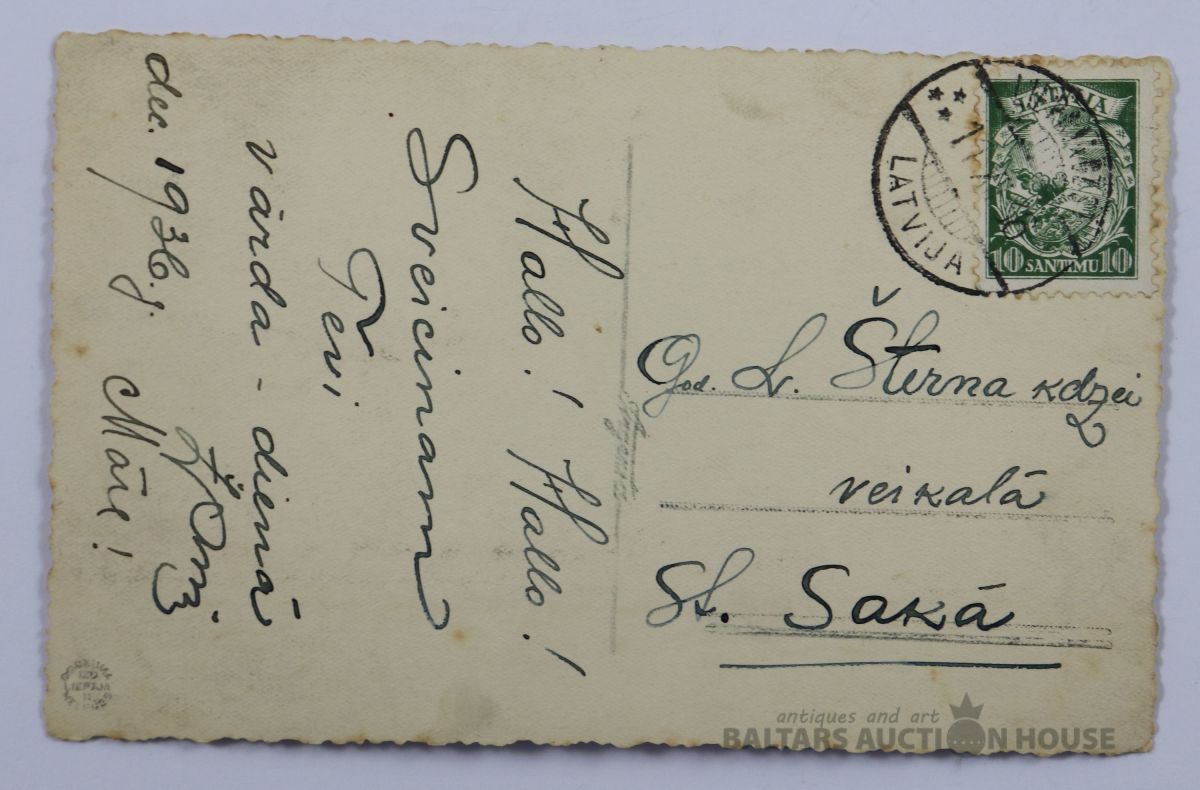 Hallo! Hallo!
Sveicinam
Tevi
vārda-dienā
Māre!
dec. 1936.g.
LATVIJA
LATVIJA
10 SANTIMU 10
God. L. Šterna kdzei
veikalā
St. Sakā
antiques and art
BALTARS AUCTION HOUSE